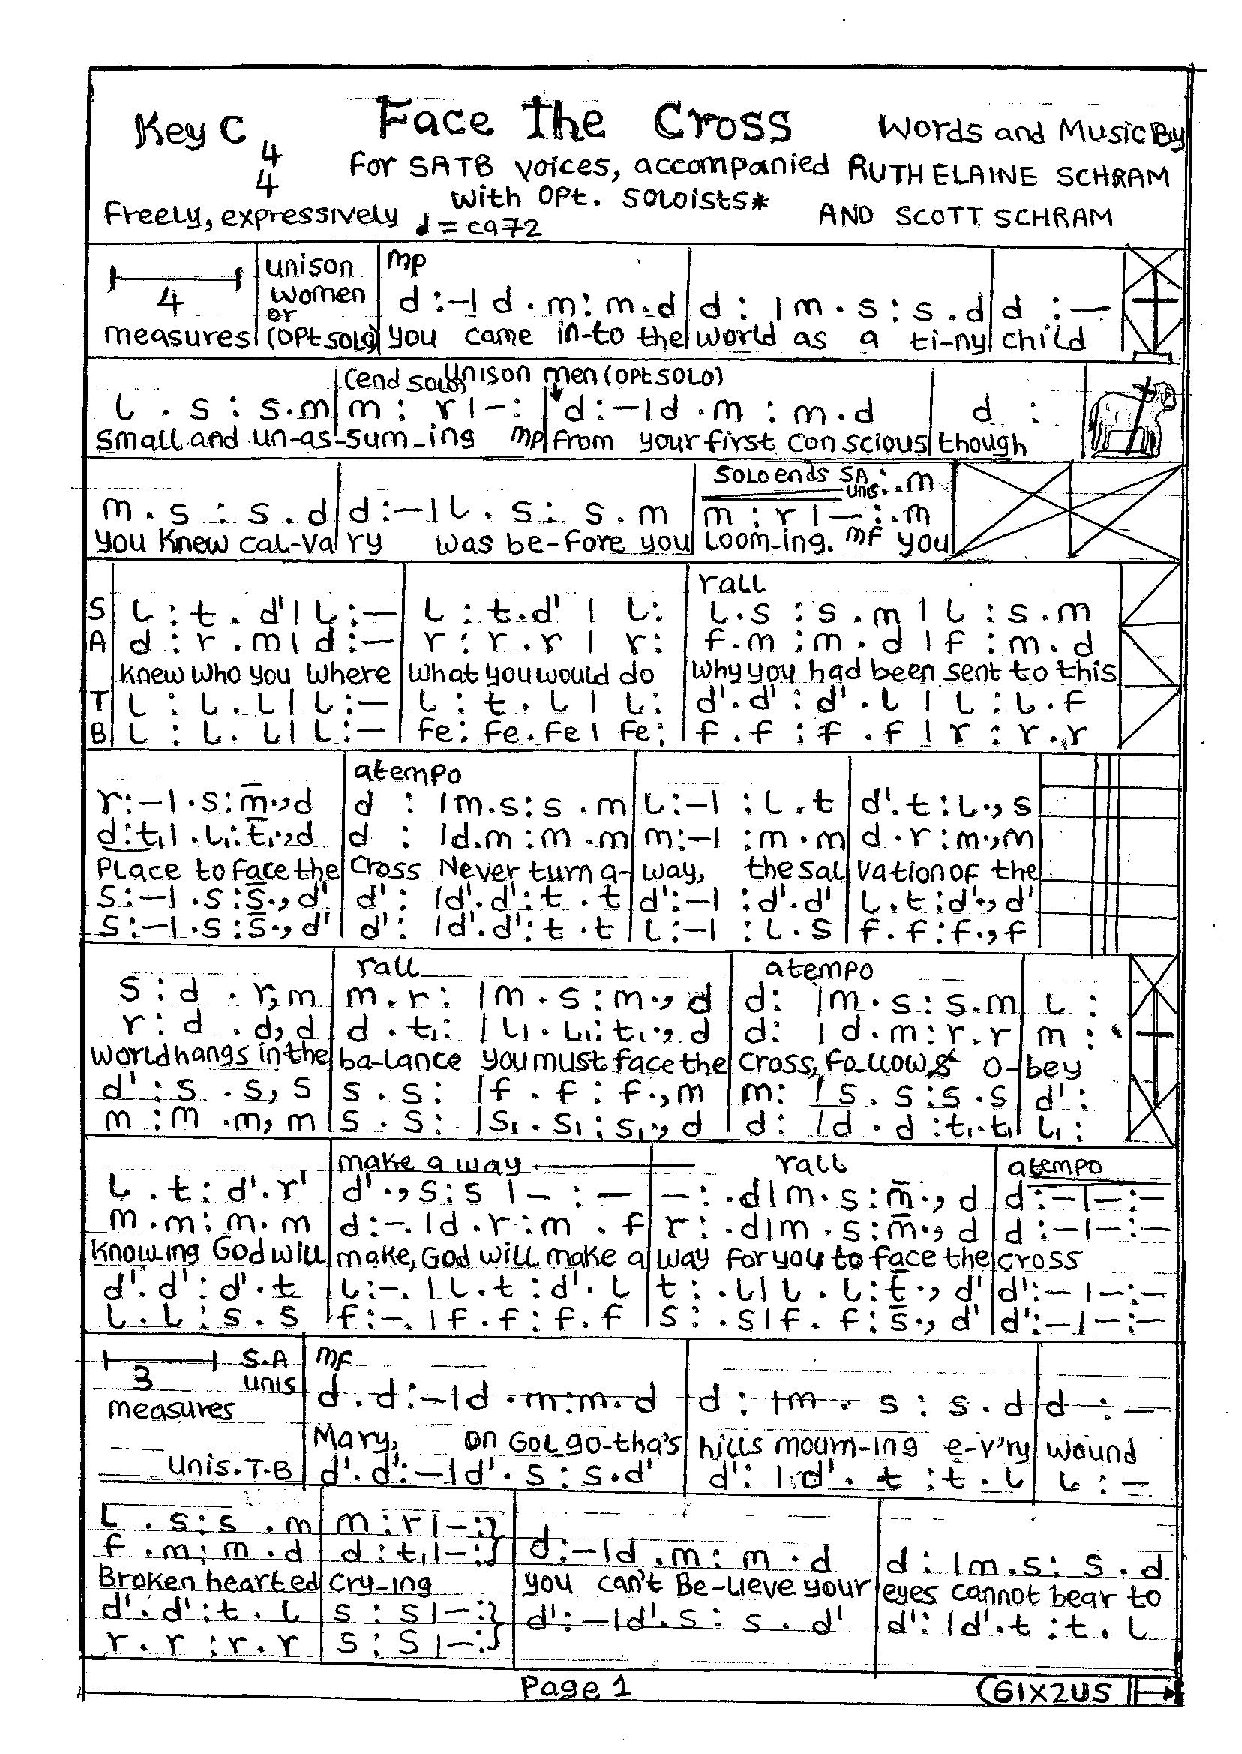 Key C 4/4
Face The Cross
Words and Music By
For SATB voices, accompanied
RUTH ELAINE SCHRAM
With Opt. Soloists*
AND SCOTT SCHRAM
Freely, expressively ♩ = ca72
4 measures
unison women or (opt solo)
mp
d :-| d . m : m . d | d : | m . s : s . d | d : —
you came in-to the world as a ti-ny child
(end solo) unison men (opt SOLO)
l . s : s . m | m : r | - : | d :-| d . m : m . d | d :
small and un-as-sum-ing mp from your first conscious though
solo ends SA unis. . m
m . s : s . d | d :-| l . s : s . m | m : r | — : . m
you knew cal-va ry was be-fore you Loom-ing. mf you
rall
S l : t . d' | l :— | l : t . d' | l : | l . s : s . m | l : s . m
A d : r . m | d :— | r : r . r | r : | f . m : m . d | f : m . d
knew who you where what you would do why you had been sent to this
T l : l . l | l :— | l : t . l | l : | d' . d' : d' . l | l : l . f
B l : l . l | l :— | fe : fe . fe | fe : | f . f : f . f | r : r . , r
atempo
r :-| . s : m . , d | d : | m . s : s . m | l :-| : l . t | d' . t : l . , s
d : t₁ | . l₁ : t₁ . , d | d : | d . m : m . m | m :-| : m . m | d . r : m . , m
Place to face the Cross Never turn a-way, the sal vation of the
s :-| . s : s . , d' | d' : | d' . d' : t . t | d' :-| : d' . d' | l . t : d' . , d'
s :-| . s : s . , d' | d' : | d' . d' : t . t | l :-| : l . s | f . f : f . , f
rall
atempo
s : d . r , m | m . r : | m . s : m . , d | d : | m . s : s . m | l :
r : d . d , d | d . t₁ : | l₁ . l₁ : t₁ . , d | d : | d . m : r . r | m :
world hangs in the ba-lance you must face the cross, follow & o-bey
d' : s . s , s | s . s : | f . f : f . , m | m : | s . s : s . s | d' :
m : m . m , m | s . s : | s₁ . s₁ : s₁ . , d | d : | d . d : t₁ . t₁ | l₁ :
make a way
rall
atempo
l . t : d' . r' | d' . , s : s | — : — | — : . d | m . s : m . , d | d :—|—:—
m . m : m . m | d :- . | d . r : m . f | r : . d | m . s : m . , d | d :—|—:—
knowing God will make, God will make a way for you to face the cross
d' . d' : d' . t | l :- . | l . t : d' . l | t : . l | l . l : t . , d' | d' :—|—:—
l . l : s . s | f :- . | f . f : f . f | s : . s | f . f : s . , d' | d' :—|—:—
3 measures
S.A unis
mf
d . d :-| d . m : m . d | d : | m . s : s . d | d : —
Mary, on Gol go-tha's hills mourn-ing e-v'ry wound
unis. T.B
d' . d' :-| d' . s : s . d' | d' : | d' . t : t . l | l : —
l . s : s . m | m : r | - : } d :-| d . m : m . d | d : | m . s : s . d
f . m : m . d | d : t₁ | - : }
Broken hearted cry-ing you can't Be-lieve your eyes cannot bear to
d' . d' : t . l | s : s | - : } d' :-| d' . s : s . d' | d' : | d' . t : t . l
r . r : r . r | s : s | - : }
Page 1
GIX2US